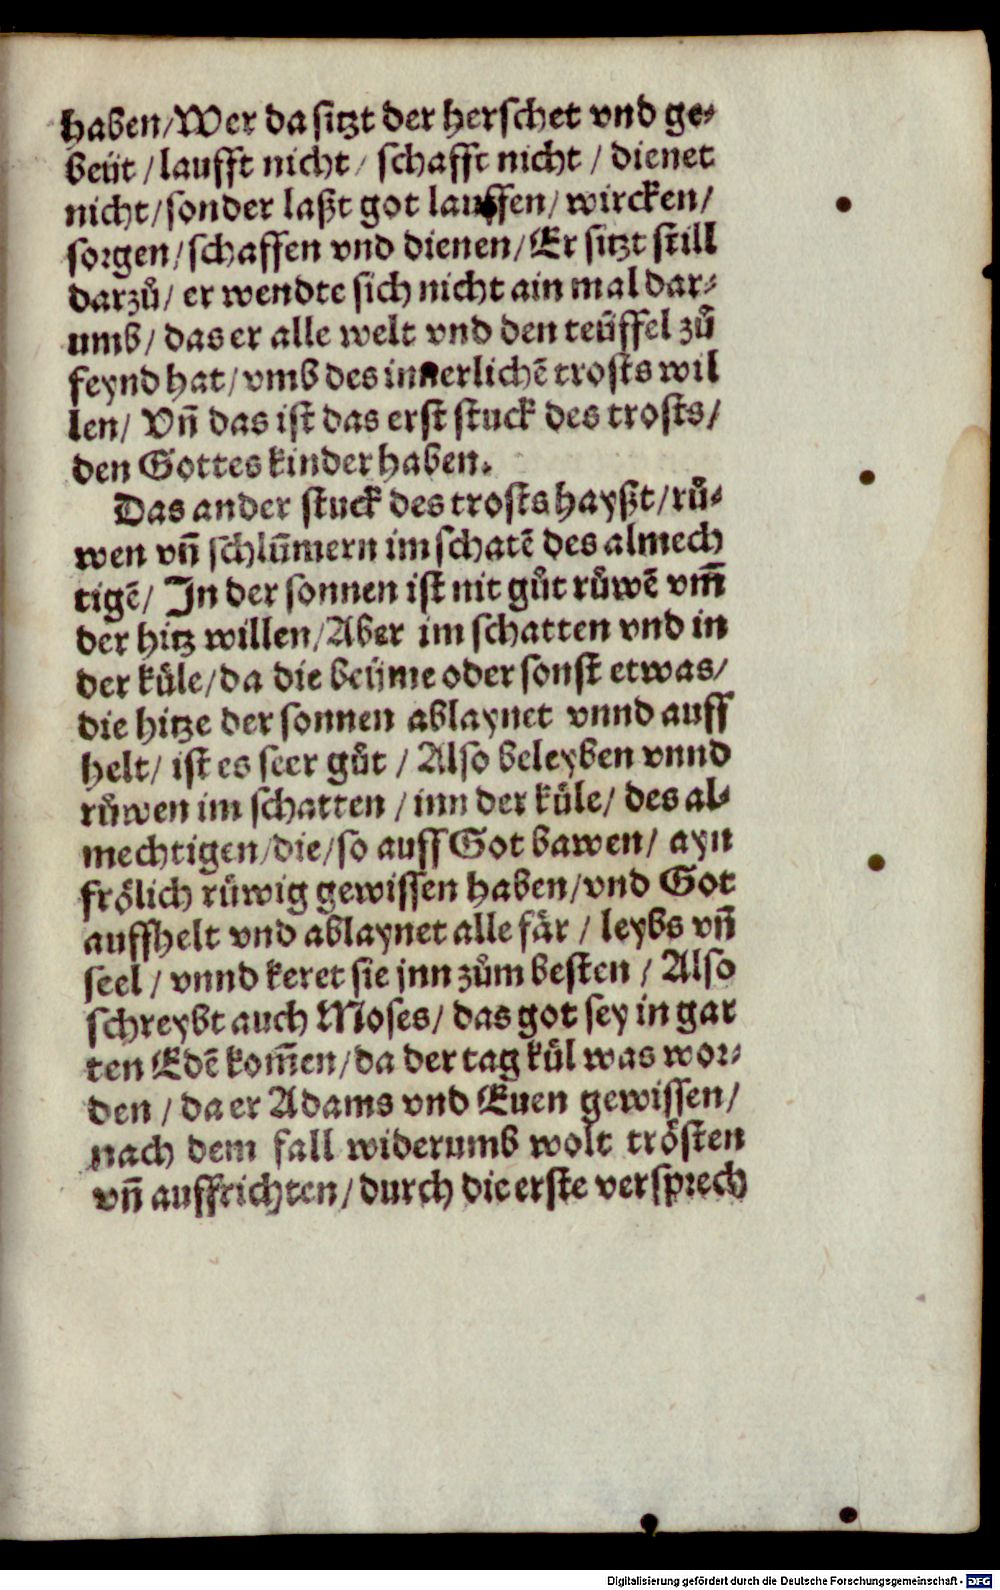 haben/Wer da sitzt der herschet vnd ge⸗
beüt / laufft nicht / schafft nicht / dienet
nicht/sonder laßt got lauffen/ wircken/
sorgen/schaffen vnd dienen/Er sitzt still
darzů/ er wendte sich nicht ain mal dar⸗
umb/ das er alle welt vnd den teüffel zů
feynd hat/ vmb des innerlichē trosts wil
len/ Vñ das ist das erst stuck des trosts/
den Gottes kinder haben.
Das ander stuck des trosts hayßt/rů⸗
wen vñ schlum̃ern im schatē des almech
tigē/ In der sonnen ist nit gůt růwē vm̃
der hitz willen/Aber im schatten vnd in
der küle/da die beüme oder sonst etwas/
die hitze der sonnen ablaynet vnnd auff
helt/ ist es seer gůt / Also beleyben vnnd
růwen im schatten / inn der küle/ des al⸗
mechtigen/die/so auff Got bawen/ ayn
frölich růwig gewissen haben/vnd Got
auffhelt vnd ablaynet alle fär / leybs vñ
seel / vnnd keret sie jnn zům besten / Also
schreybt auch Moses/ das got sey in gar
ten Edē kom̃en/da der tag kül was wor⸗
den / da er Adams vnd Euen gewissen/
nach dem fall widerumb wolt trösten
vñ auffrichten/ durch die erste versprech
Digitalisierung gefördert durch die Deutsche Forschungsgemeinschaft - DFG